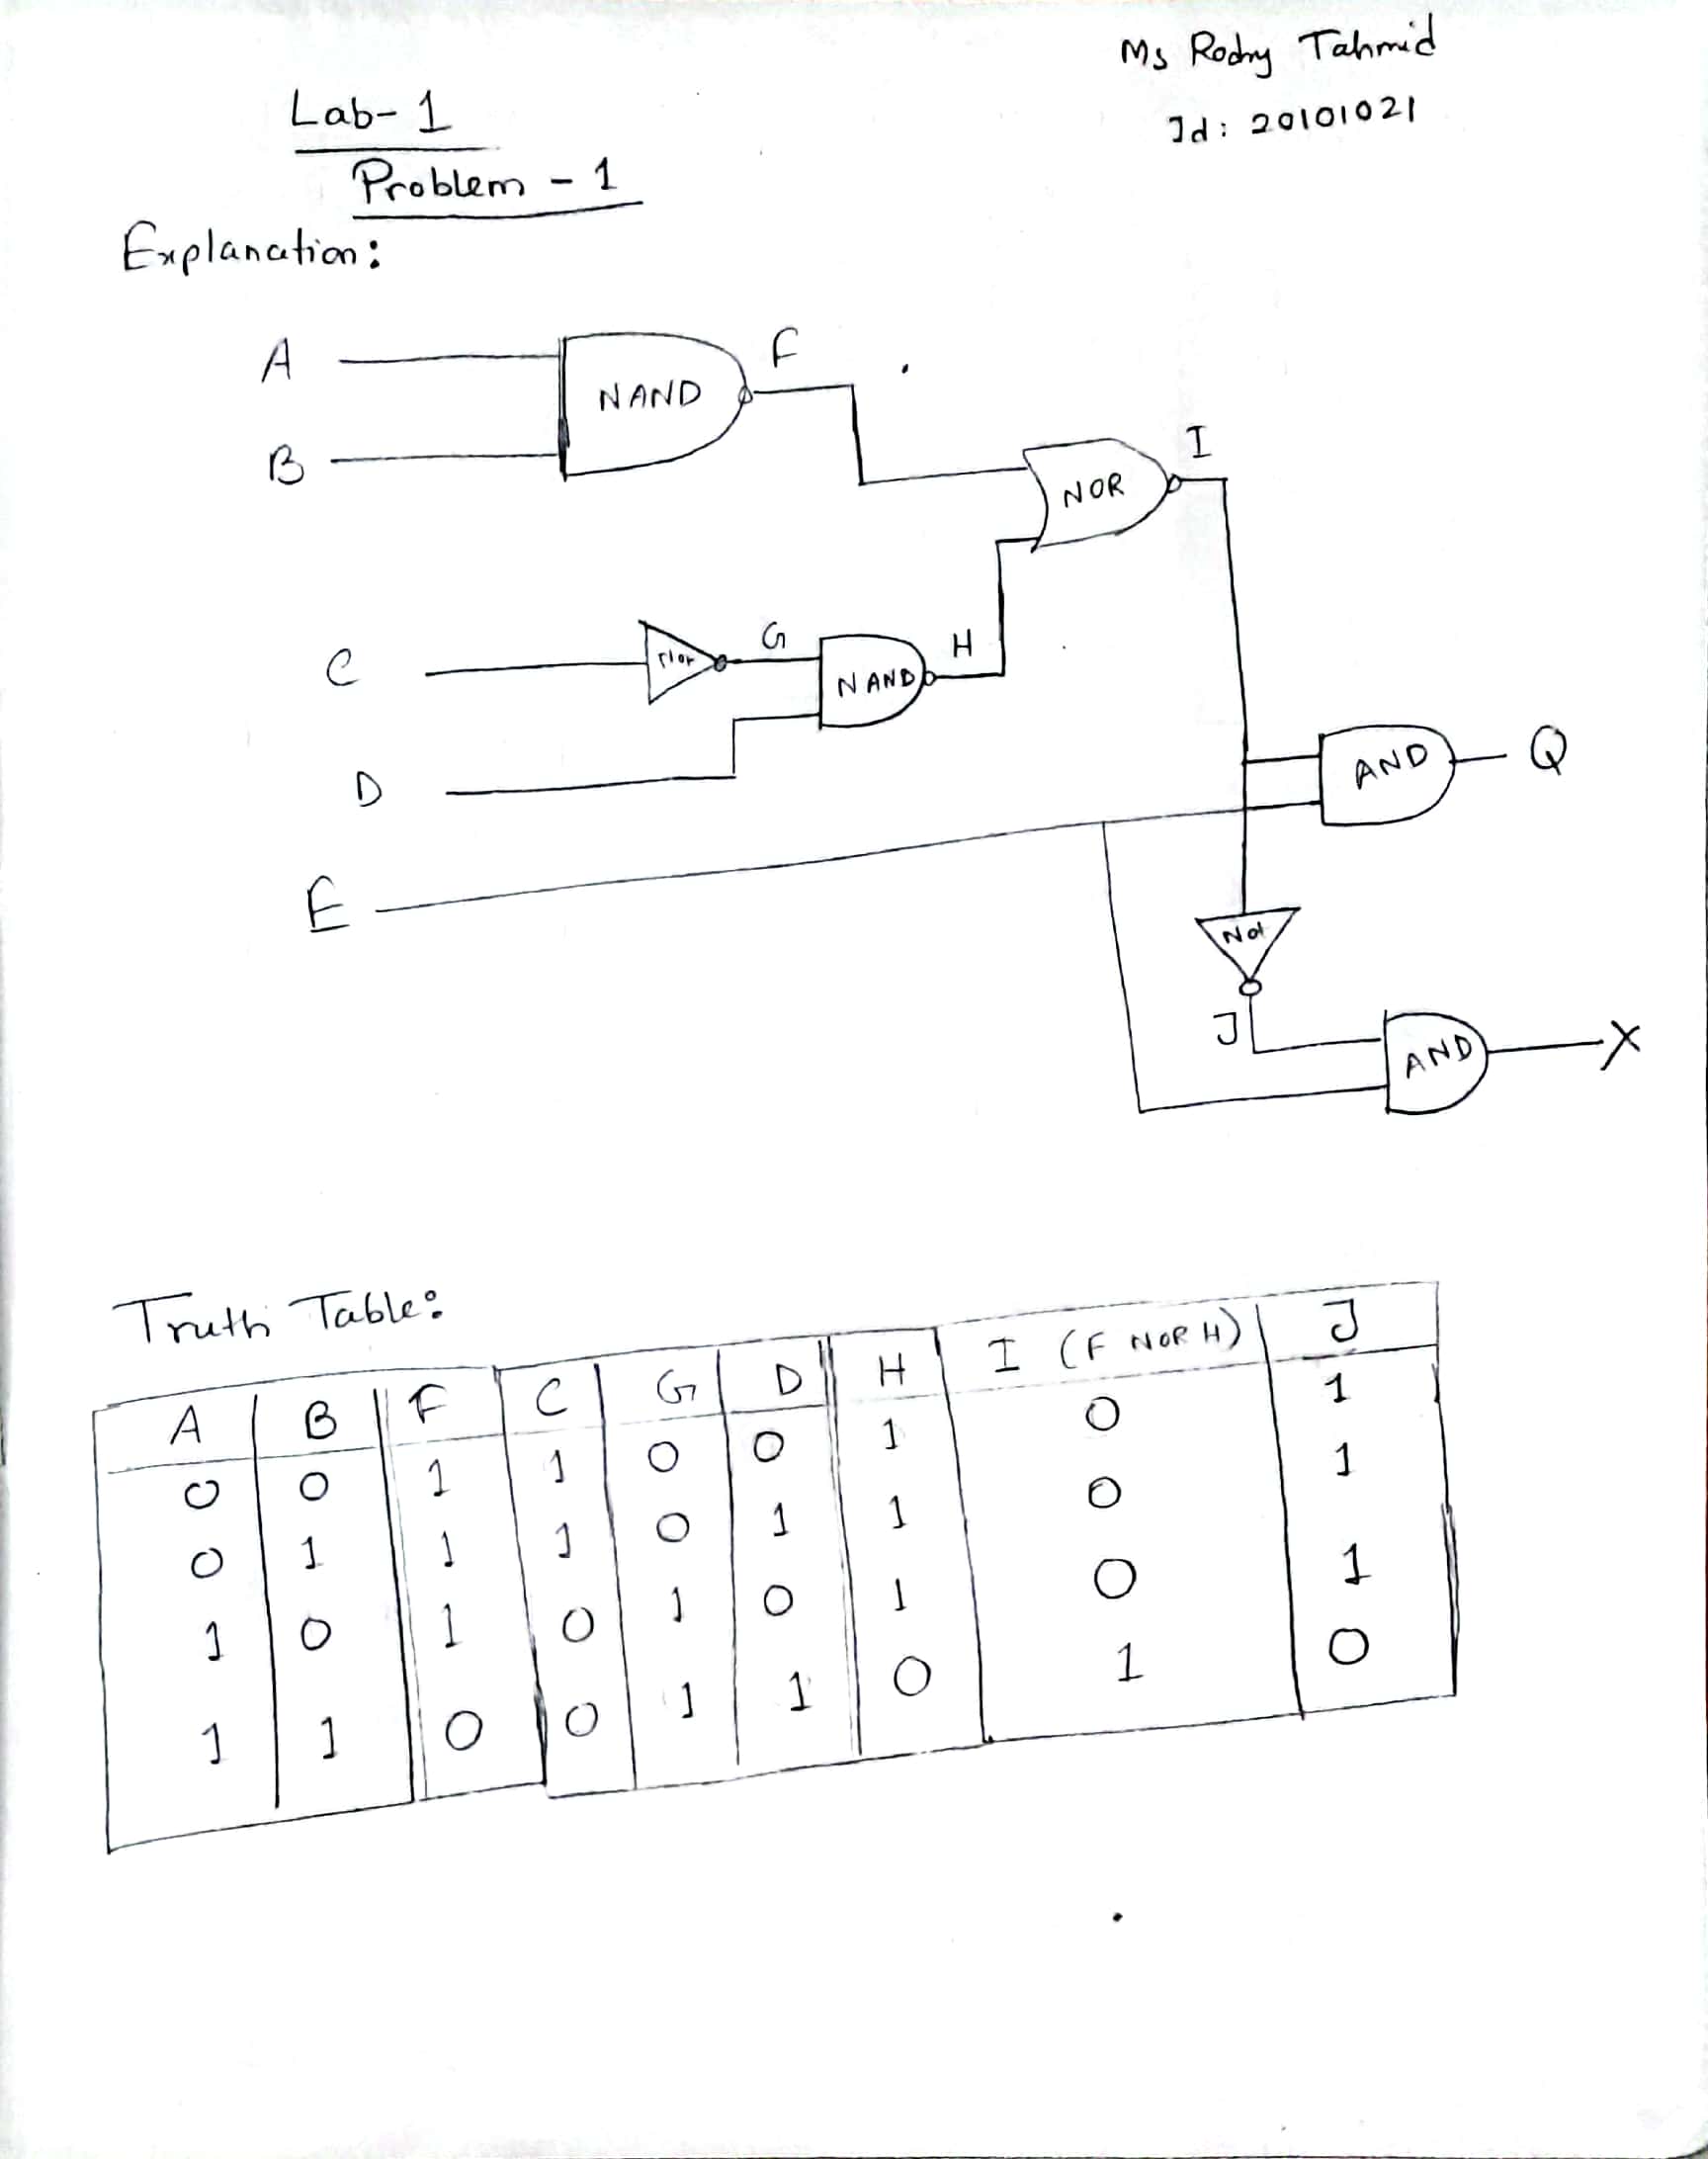 Ms Rody Tahmid
Id: 20101021
Lab-1
Problem - 1
Explanation:
A
B
NAND
F
NOR
I
C
G
NAND
H
D
AND
Q
E
Not
J
AND
X
Truth Table:
A B F C G D H I (F NOR H) J
0 0 1 1 0 0 1 0 1
0 1 1 1 0 1 1 0 1
1 0 1 0 1 0 1 0 1
1 1 0 0 1 1 0 1 0